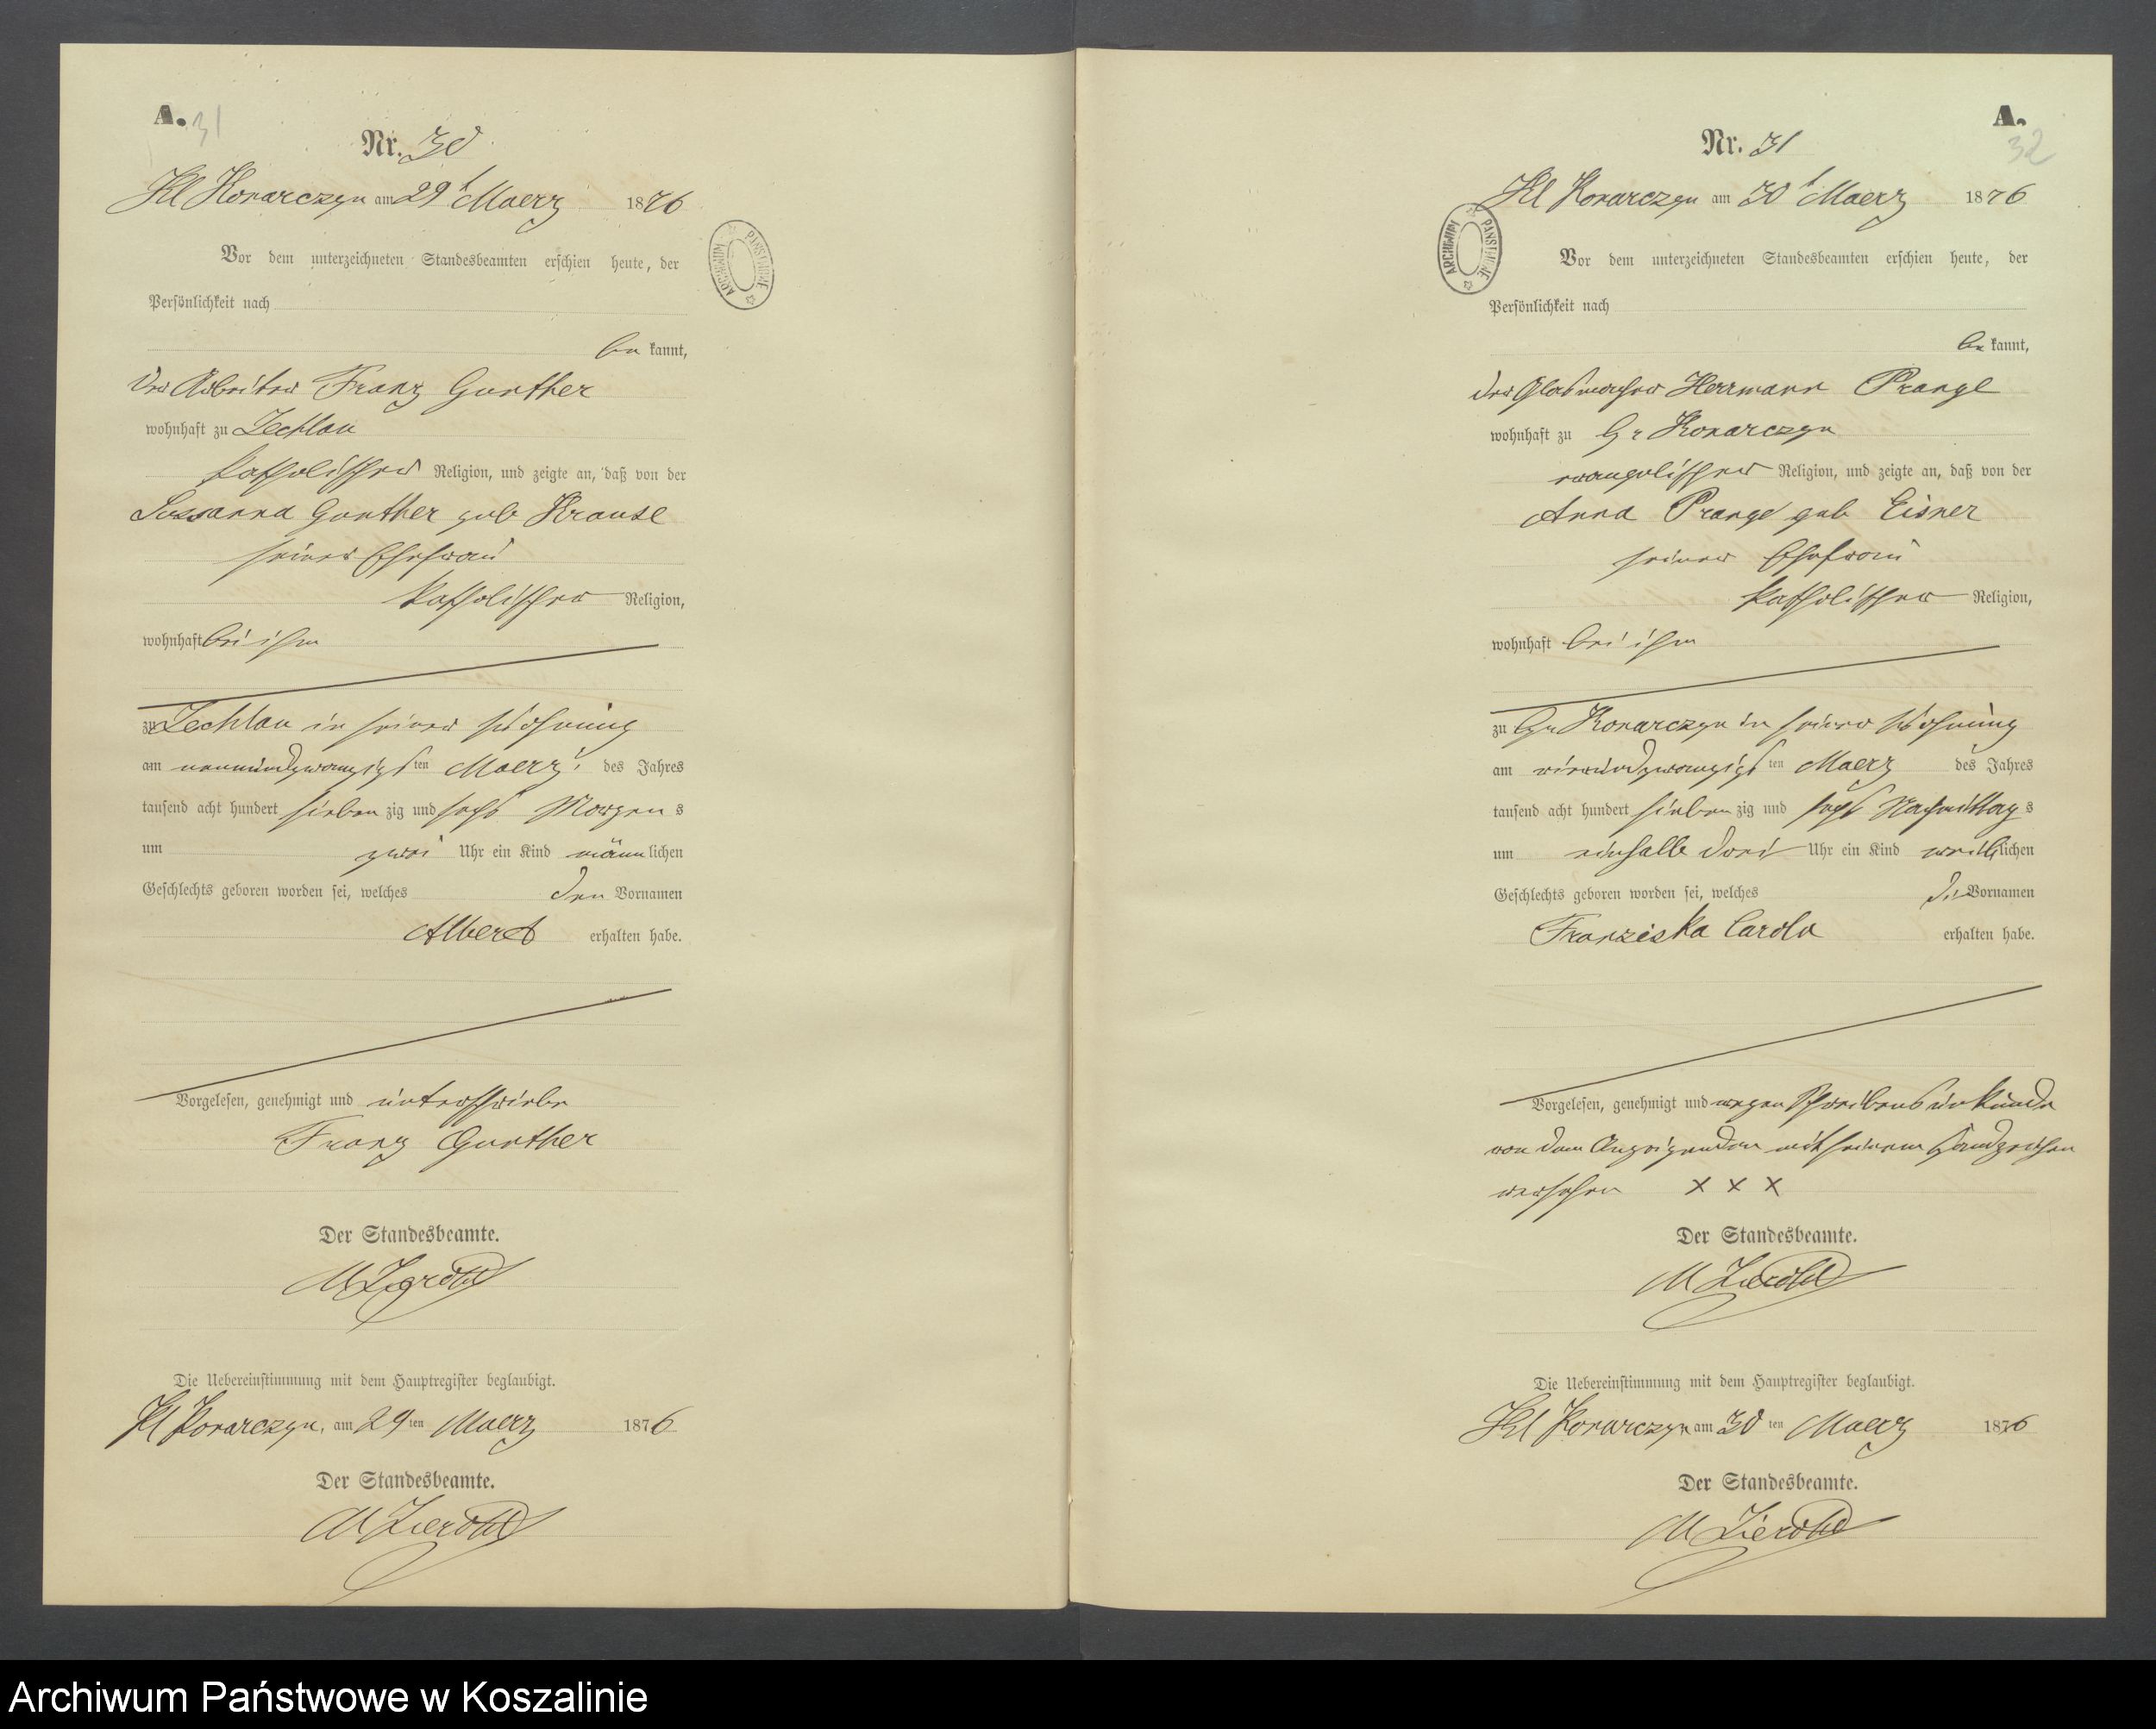 A. 31
Nr. 30
Kl Konarczyn am 29t Maerz 1876
Vor dem unterzeichneten Standesbeamten erschien heute, der
Persönlichkeit nach
be kannt,
der Arbeiter Franz Gunther
wohnhaft zu Zechlau
katholischer Religion, und zeigte an, daß von der
Sussanna Gunther geb Krause
seiner Ehefrau
katholischer Religion,
wohnhaft bei ihm
zu Zechlau in seiner Wohnung
am neunundzwanzigsten Maerz des Jahres
tausend acht hundert sieben zig und sechs Morgens
um zwei Uhr ein Kind männlichen
Geschlechts geboren worden sei, welches den Vornamen
Albert erhalten habe.
Vorgelesen, genehmigt und unterschrieben
Franz Gunther
Der Standesbeamte.
M Zierold
Die Uebereinstimmung mit dem Hauptregister beglaubigt.
Kl Konarczyn, am 29ten Maerz 1876
Der Standesbeamte.
M Zierold
A.
32
Nr. 31
Kl Konarczyn am 30t Maerz 1876
ARCHIWUM PAŃSTWOWE
Vor dem unterzeichneten Standesbeamten erschien heute, der
Persönlichkeit nach
be kannt,
der Glasmacher Herrmann Prange
wohnhaft zu Gr Konarczyn
evangelischer Religion, und zeigte an, daß von der
Anna Prange geb Eisner
seiner Ehefrau
katholischer Religion,
wohnhaft bei ihm
zu Gr Konarczyn in seiner Wohnung
am vierundzwanzigsten Maerz des Jahres
tausend acht hundert sieben zig und sechs Nachmittags
um einhalb drei Uhr ein Kind weiblichen
Geschlechts geboren worden sei, welches die Vornamen
Franziska Carola erhalten habe.
Vorgelesen, genehmigt und wegen Schreibensunkunde
von dem Anzeigenden mit seinem Handzeichen
versehen x x x
Der Standesbeamte.
M Zierold
Die Uebereinstimmung mit dem Hauptregister beglaubigt.
Kl Konarczyn am 30ten Maerz 1876
Der Standesbeamte.
M Zierold
Archiwum Państwowe w Koszalinie